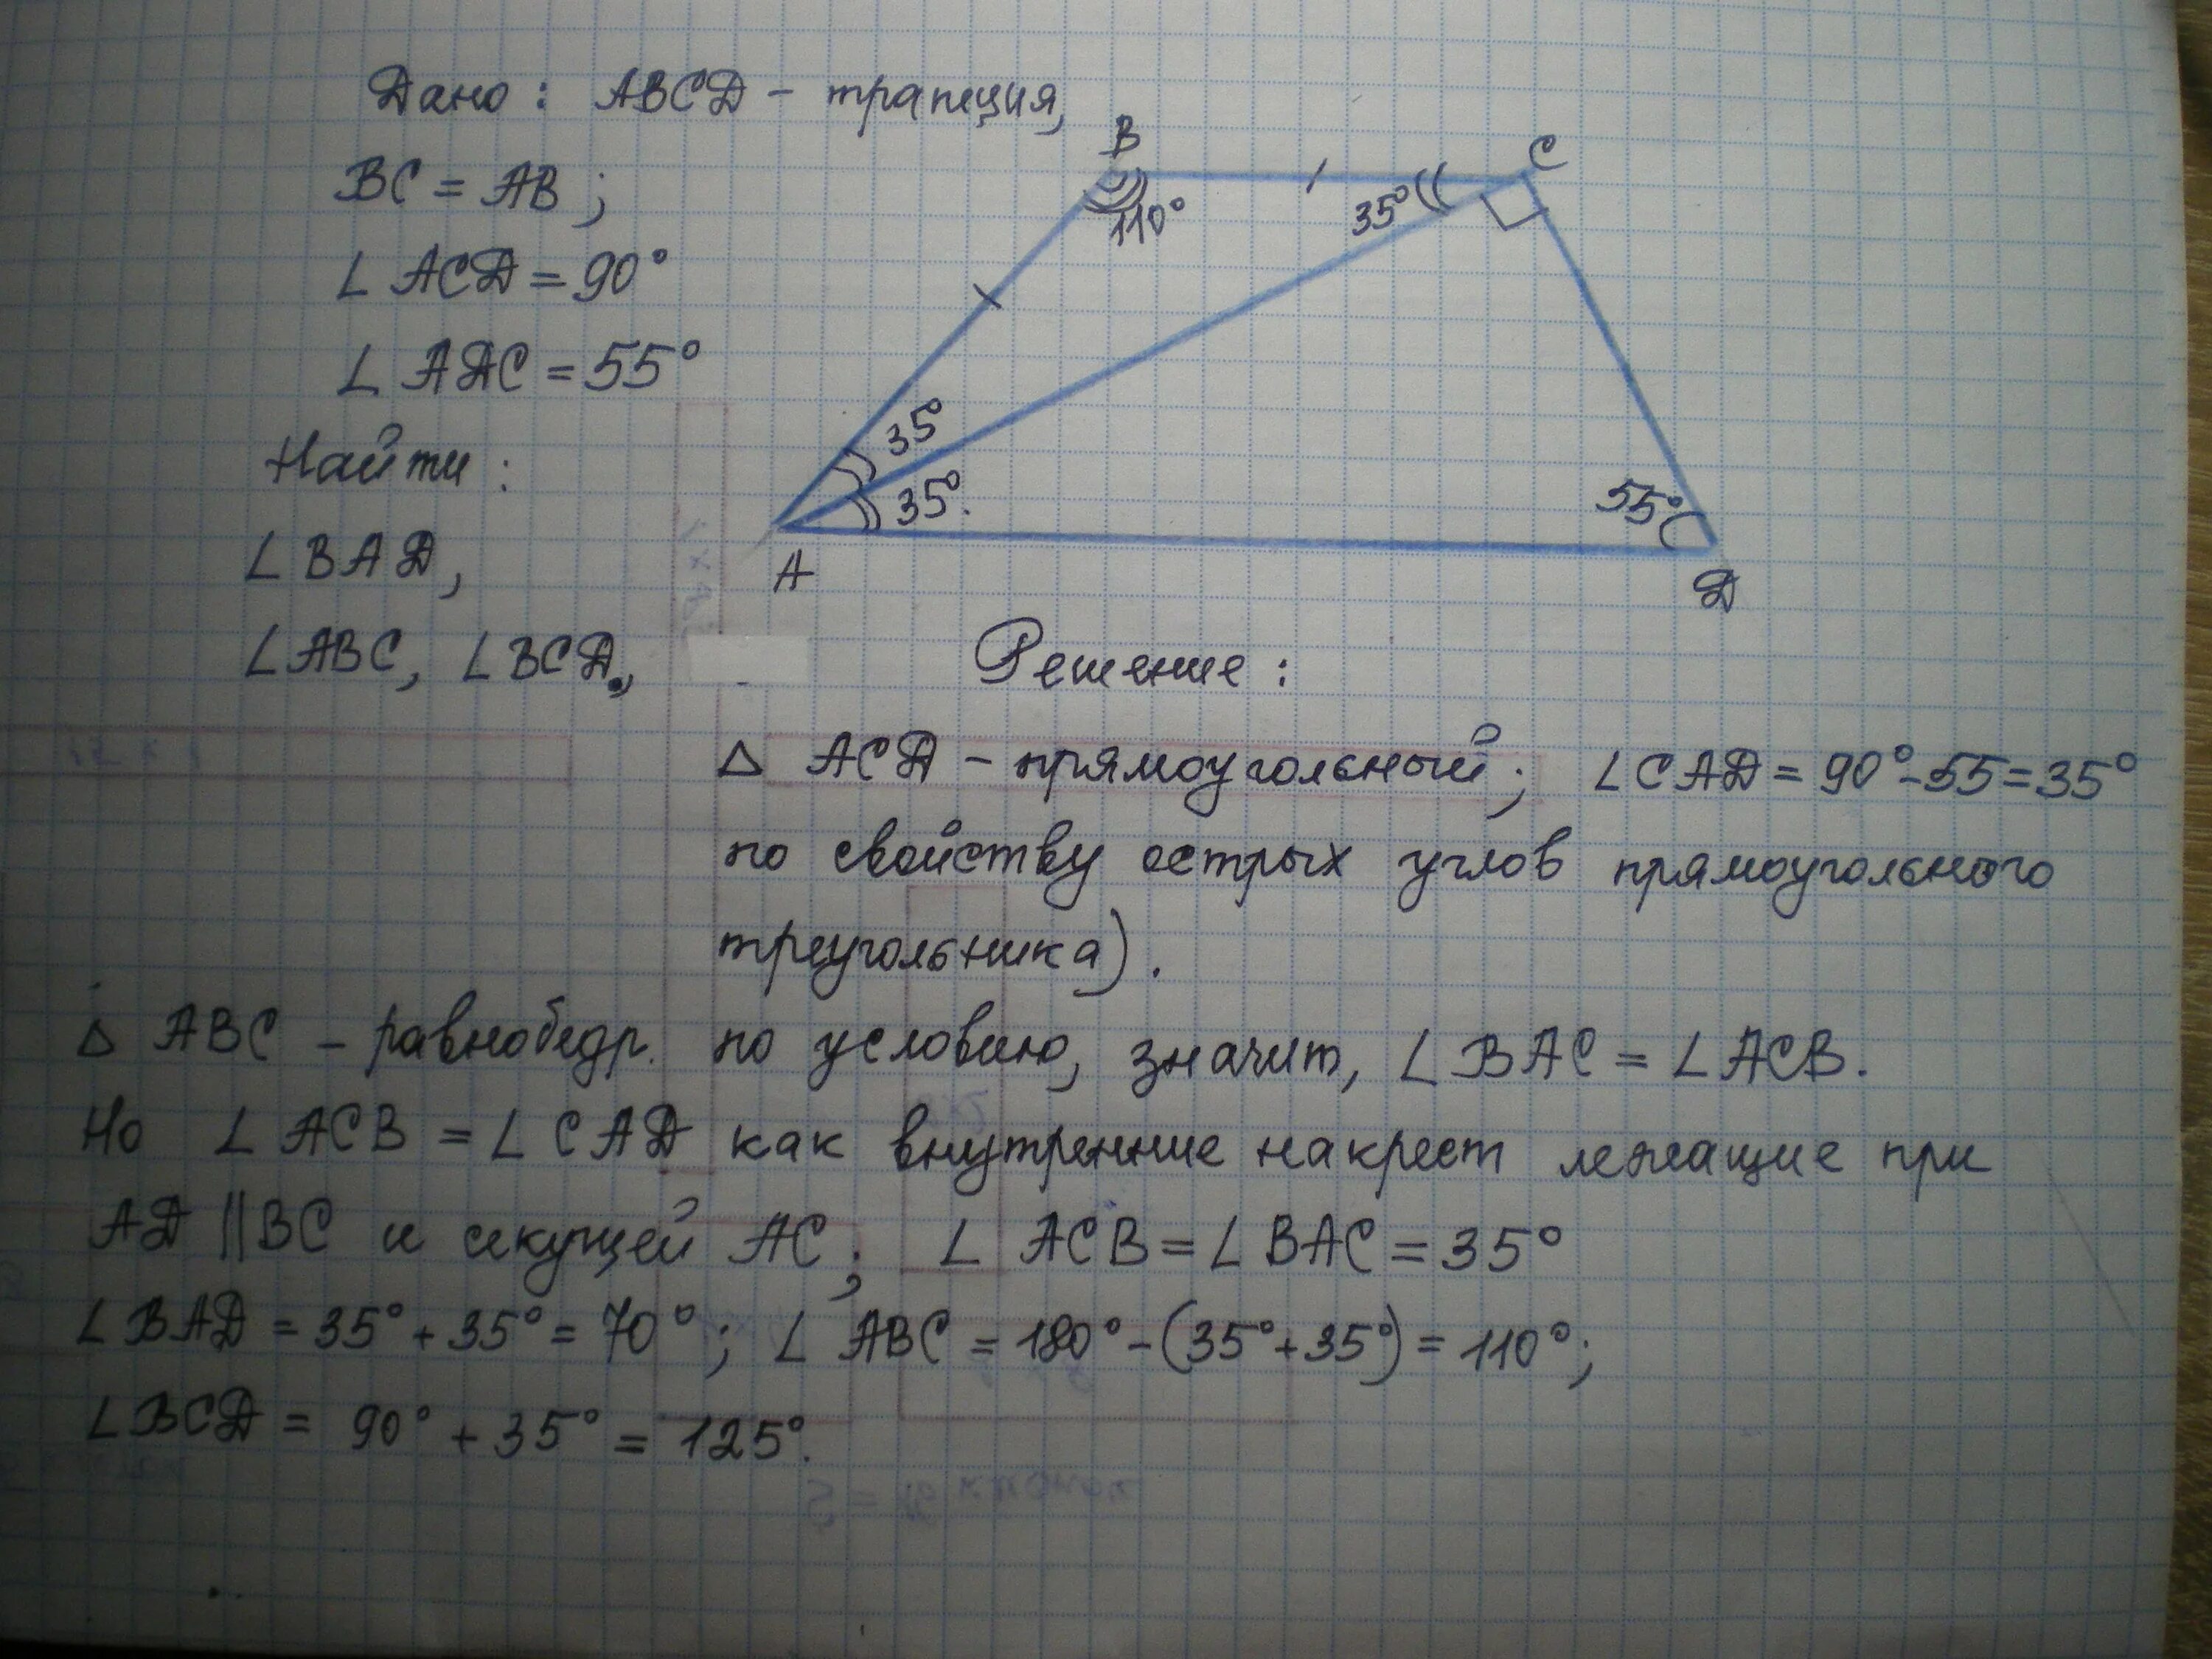 Дано: ABCD - трапеция,
BC = AB;
∠ ACD = 90°
∠ ADC = 55°
Найти:
∠BAD,
∠ABC, ∠BCD,
B
C
110°
35°
35°
35°.
55°
A
D
Решение:
△ ACD - прямоугольный; ∠CAD = 90°-55=35°
по свойству острых углов прямоугольного
треугольника).
△ ABC - равнобедр. по условию, значит, ∠BAC = ∠ACB.
Но ∠ ACB = ∠ CAD как внутренние накрест лежащие при
AD || BC и секущей AC; ∠ ACB = ∠BAC = 35°
∠BAD = 35°+35°= 70°; ∠ ABC = 180°-(35°+35°) = 110°;
∠BCD = 90° + 35° = 125°.